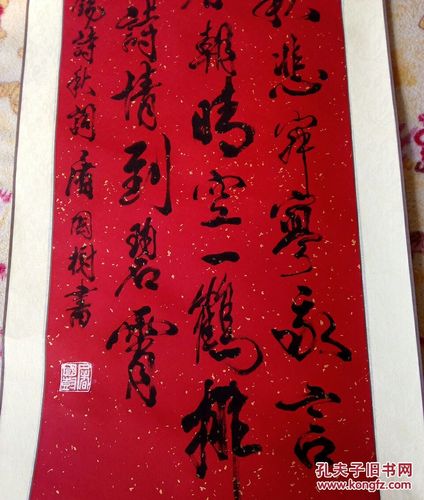 秋悲寂寥我言
春朝晴空一鶴排
詩情到碧霄
錫詩秋詞 国樹書
孔夫子旧书网
www.kongfz.com